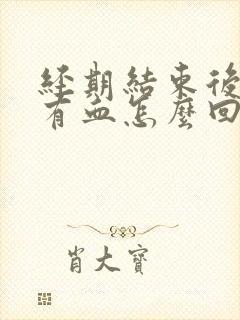 經期結束後
有血怎麼回
肖大寶